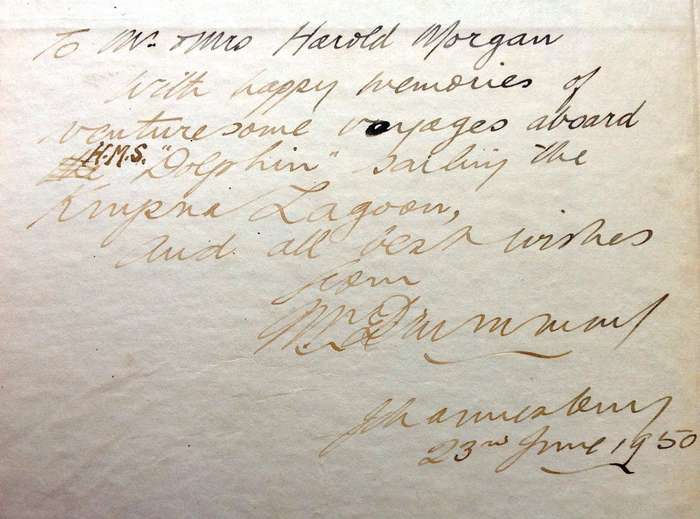 To Mr. & Mrs Harold Morgan
With happy memories of
venturesome voyages aboard
H.M.S. "Dolphin" sailing the
Knysna Lagoon,
and all best wishes
from
Drummond
Johannesburg
23rd June, 1950